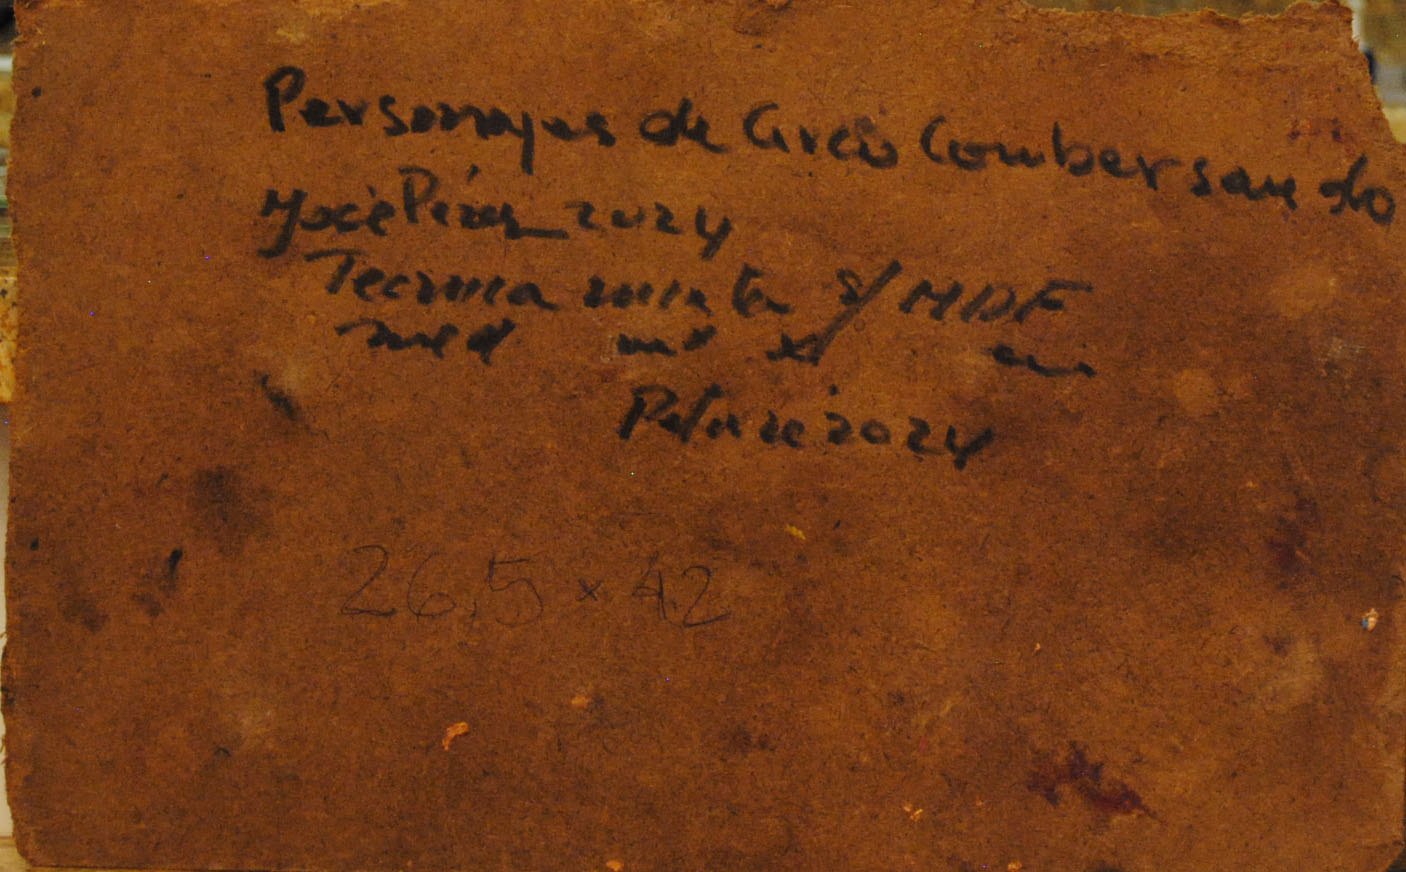 Personajes de Circo Combersando
José Pérez 2024
Tecnica mixta s/ MDF
med x cm
Petare 2024
26,5 x 42